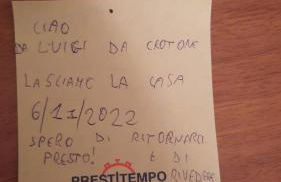 CIAO
DA LUIGI DA CROTONE
LASCIAMO LA CASA
6/11/2022
SPERO DI RITORNARE
PRESTO! E DI
RIVEDERE
PRESTITEMPO